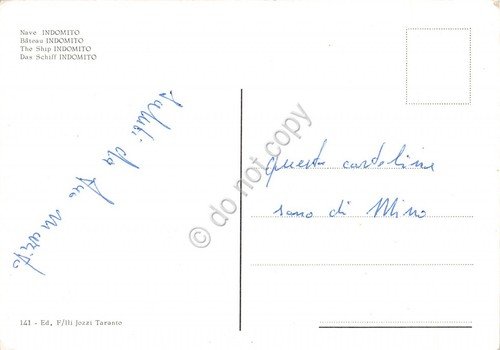 Nave INDOMITO
Bâteau INDOMITO
The Ship INDOMITO
Das Schiff INDOMITO
Saluti da tuo marito
queste cartoline
sono di Mino
© do not copy
141 - Ed. F/lli Jozzi Taranto